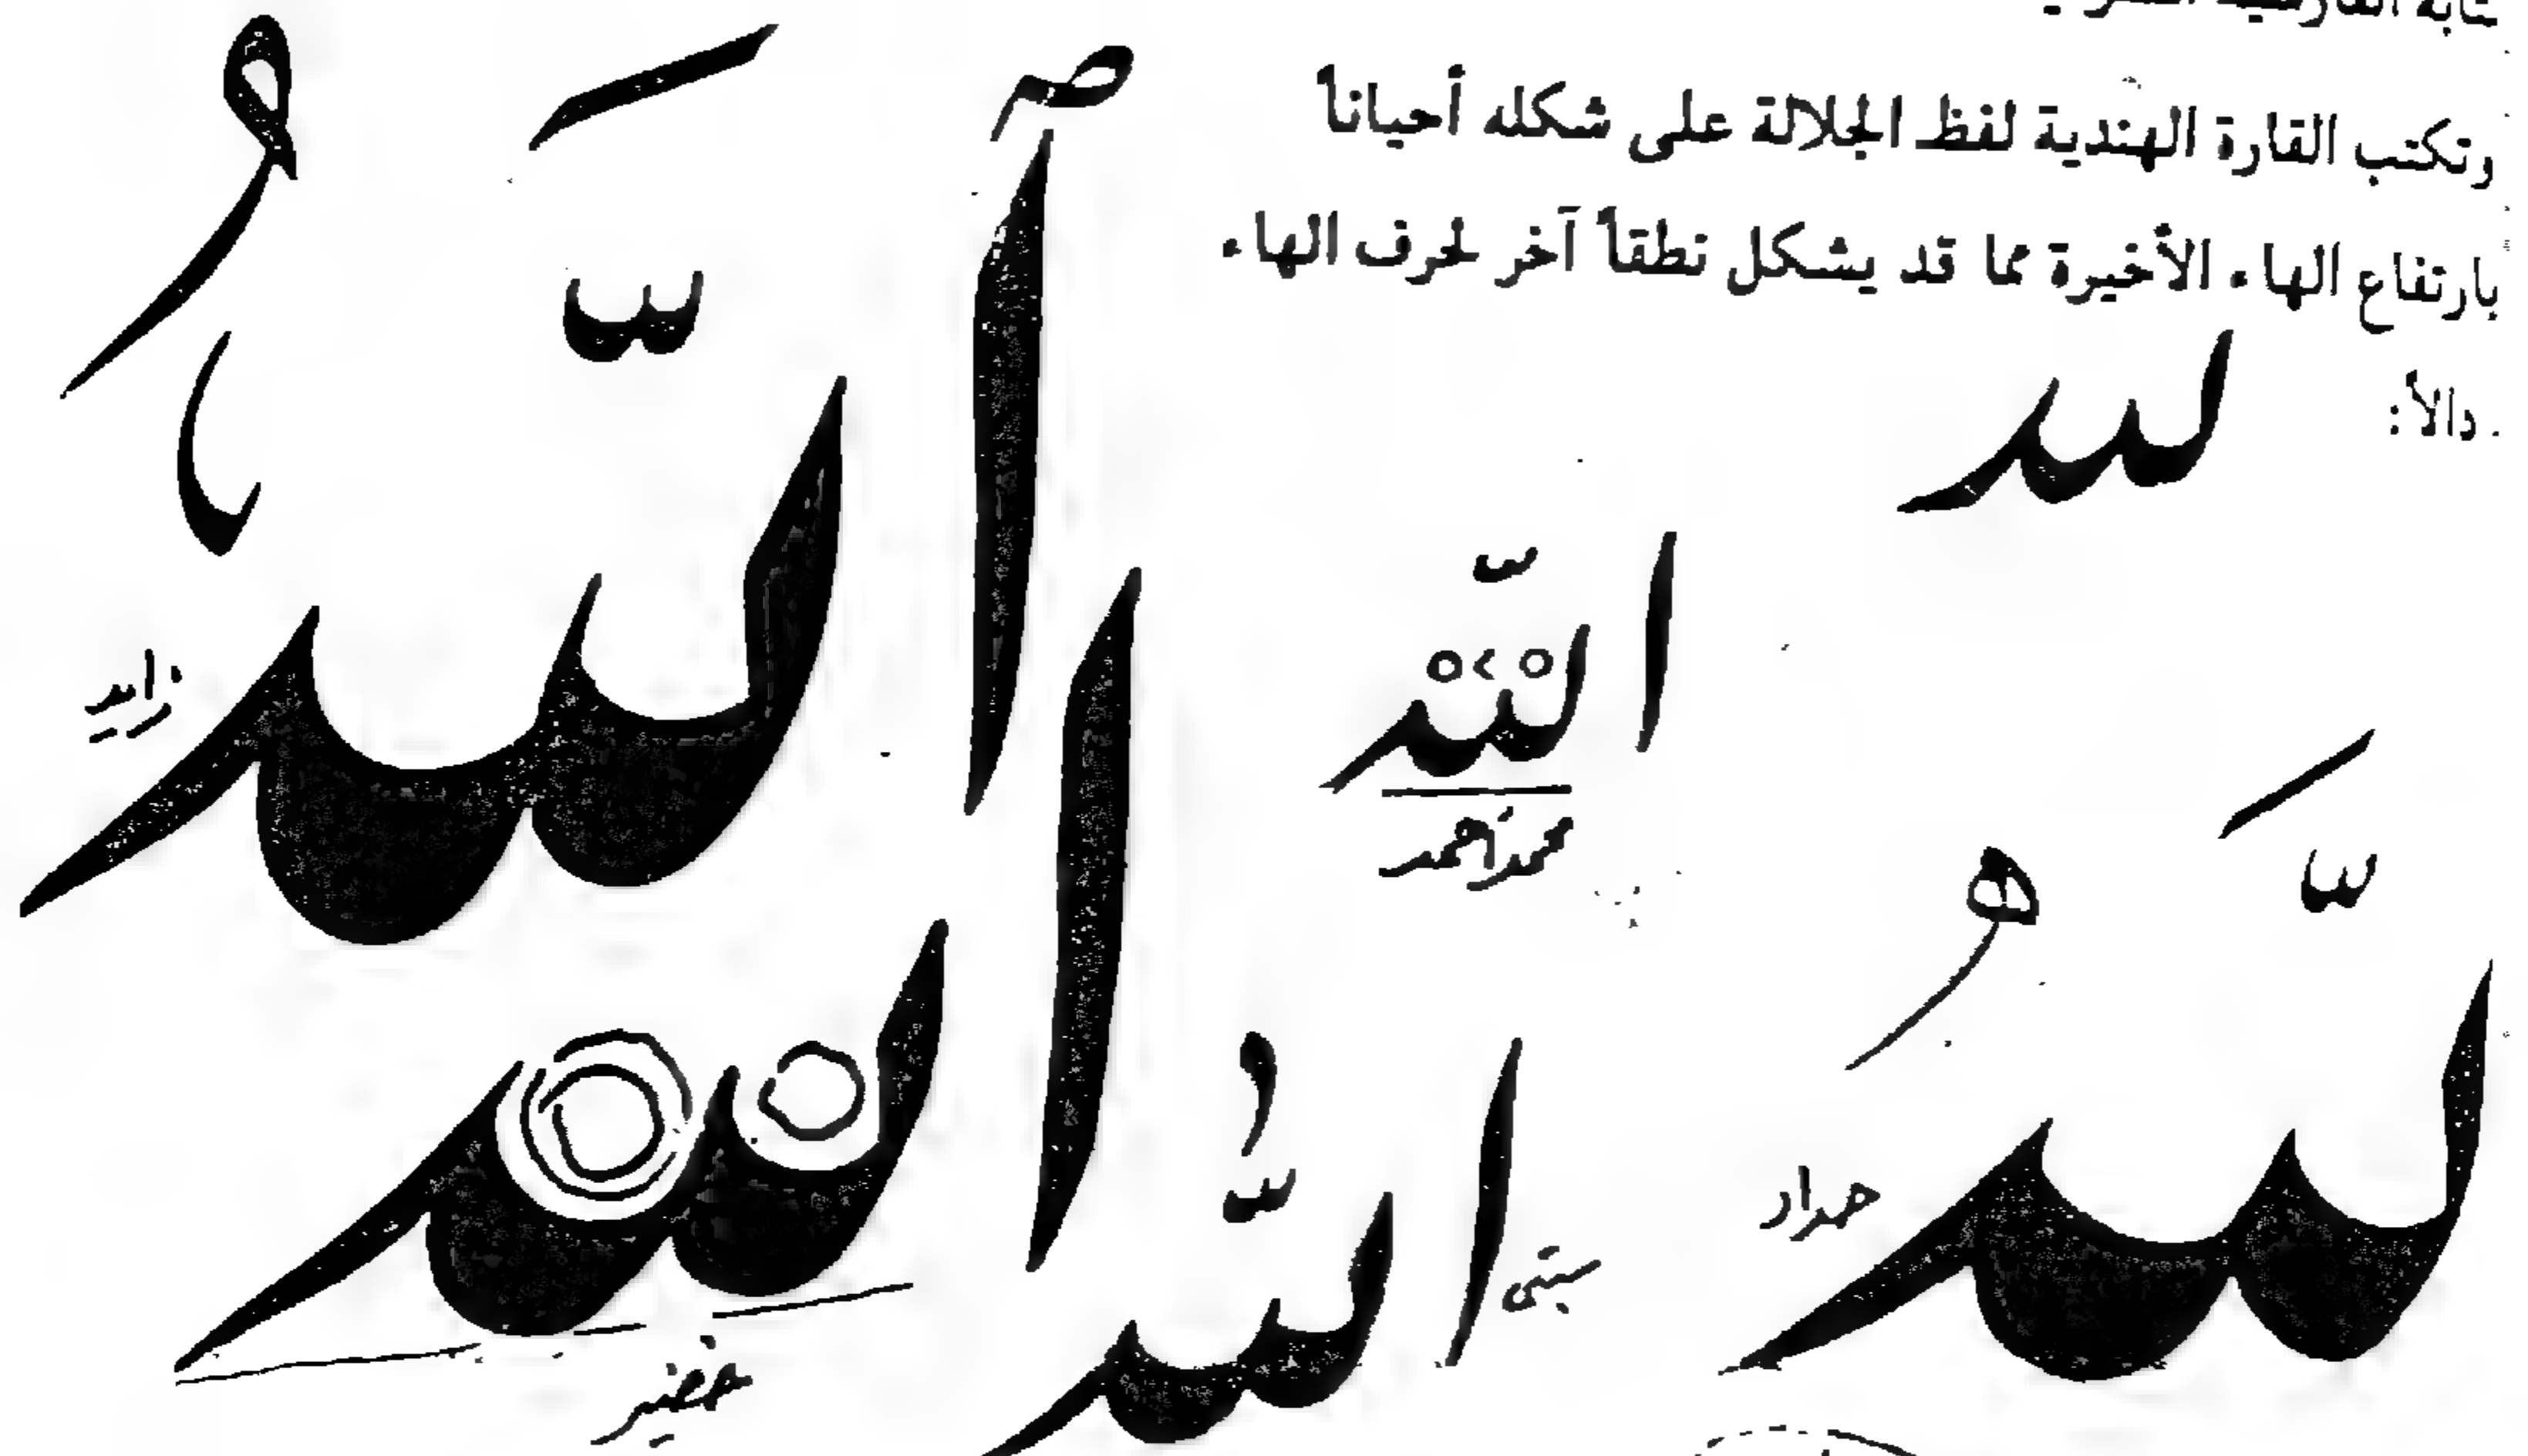 وتكتب القارة الهندية لفظ الجلالة على شكله أحياناً
بارتفاع الهاء الأخيرة مما قد يشكل نطقاً آخر لحرف الهاء
دالاً :
لله
الله
الله
محمد أحمد
زايد
لله
حداد
الله
خضير
الله
سبتي